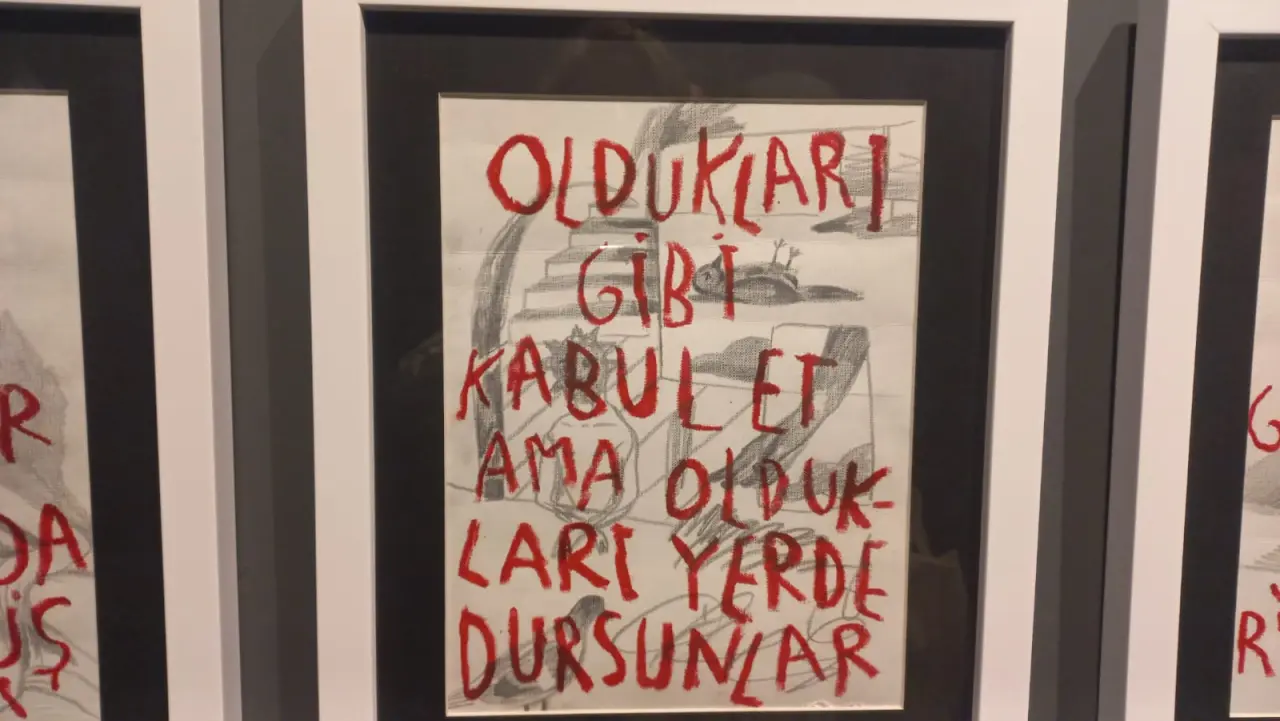 OLDUKLARI
GİBİ
KABUL ET
AMA OLDUK-
LARI YERDE
DURSUNLAR